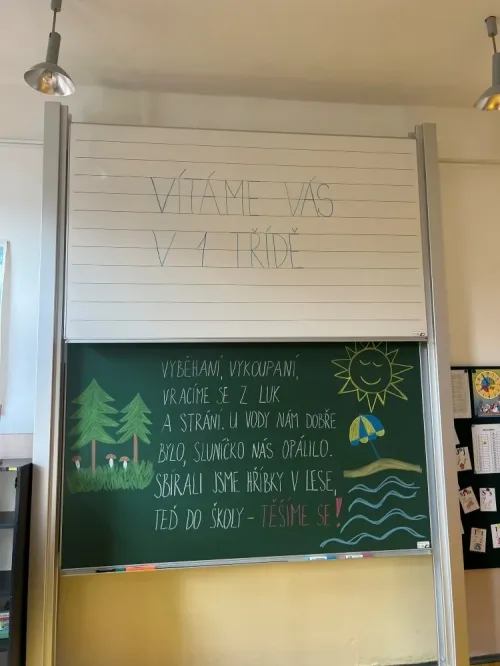 VÍTÁME VÁS
V 1 TŘÍDĚ
VYBĚHANÍ, VYKOUPANÍ,
VRACÍME SE Z LUK
A STRÁNÍ. U VODY NÁM DOBŘE
BYLO, SLUNÍČKO NÁS OPÁLILO.
SBÍRALI JSME HŘÍBKY V LESE,
TEĎ DO ŠKOLY – TĚŠÍME SE!